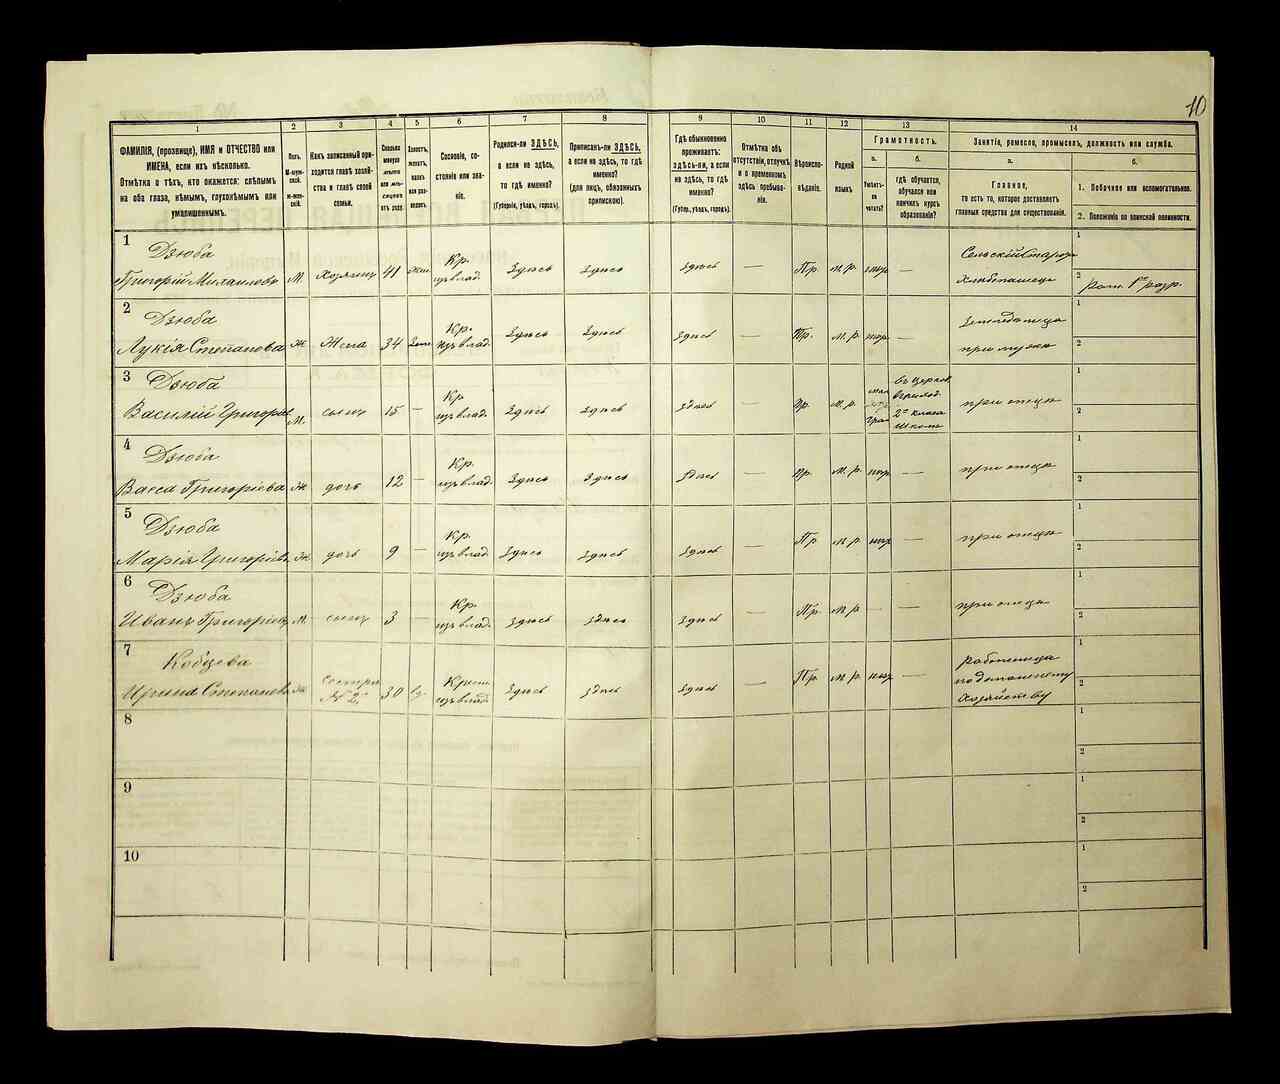 10
1
2
3
4
5
6
7
8
9
10
11
12
13
14
ФАМИЛІЯ, (прозвище), ИМЯ и ОТЧЕСТВО или
ИМЕНА, если ихъ нѣсколько.
Отмѣтка о тѣхъ, кто окажется: слѣпымъ
на оба глаза, нѣмымъ, глухонѣмымъ или
умалишеннымъ.
Полъ.
М-муж-
ской.
Ж-жен-
скій.
Какъ записанный при-
ходится главѣ хозяй-
ства и главѣ своей
семьи.
Сколько
минуло
лѣтъ
или мѣ-
сяцевъ
отъ роду.
Холостъ,
женатъ,
вдовъ
или раз-
веденъ.
Сословіе, со-
стояніе или зва-
ніе.
Родился-ли ЗДѢСЬ,
а если не здѣсь,
то гдѣ именно?
(Губернія, уѣздъ, городъ).
Приписанъ-ли ЗДѢСЬ,
а если не здѣсь, то гдѣ
именно?
(для лицъ, обязанныхъ
припискою).
Гдѣ обыкновенно
проживаетъ:
здѣсь-ли, а если
не здѣсь, то гдѣ
именно?
(Губер., уѣздъ, городъ).
Отмѣтка объ
отсутствіи, отлучкѣ
и о временномъ
здѣсь пребыва-
ніи.
Вѣроиспо-
вѣданіе.
Родной
языкъ.
Грамотность.
а.
б.
Умѣетъ-
ли
читать?
гдѣ обучается,
обучался или
кончилъ курсъ
образованія?
Занятіе, ремесло, промыселъ, должность или служба.
а.
б.
Главное,
то есть то, которое доставляетъ
главныя средства для существованія.
1. Побочное или вспомогательное.
2. Положеніе по воинской повинности.
1
Дзюба
Григорій Михаиловъ М. Хозяинъ 41 Жен. Кр. изъ влад. Здѣсь Здѣсь Здѣсь — Пр. м.р. нѣтъ — Сельскій Старос. Хлѣбопашецъ
1
2
ратн. 1го разр.
2
Дзюба
Лукія Степанова Ж Жена 34 Зам. Кр. изъ влад. Здѣсь Здѣсь Здѣсь — Пр. м.р. нѣтъ — при мужѣ
1
2
3
Дзюба
Василій Григорьев М. сынъ 15 — Кр. изъ влад. Здѣсь Здѣсь Здѣсь — Пр. м.р. въ церков. приход. 2х класн. школѣ при отцѣ
1
2
4
Дзюба
Васса Григоріева Ж дочь 12 — Кр. изъ влад. Здѣсь Здѣсь Здѣсь — Пр. м.р. нѣтъ — при отцѣ
1
2
5
Дзюба
Марія Григоріев. Ж дочь 9 — Кр. изъ влад. Здѣсь Здѣсь Здѣсь — Пр. м.р. нѣтъ — при отцѣ
1
2
6
Дзюба
Иванъ Григоріевъ М. сынъ 3 — Кр. изъ влад. Здѣсь Здѣсь Здѣсь — Пр. м.р. — — при отцѣ
1
2
7
Кобцева
Ирина Степанова Ж сестра № 2й 30 Крест. изъ влад. Здѣсь Здѣсь Здѣсь — Пр. м.р. нѣтъ — работница по домашнему хозяйству
1
2
8
1
2
9
1
2
10
1
2